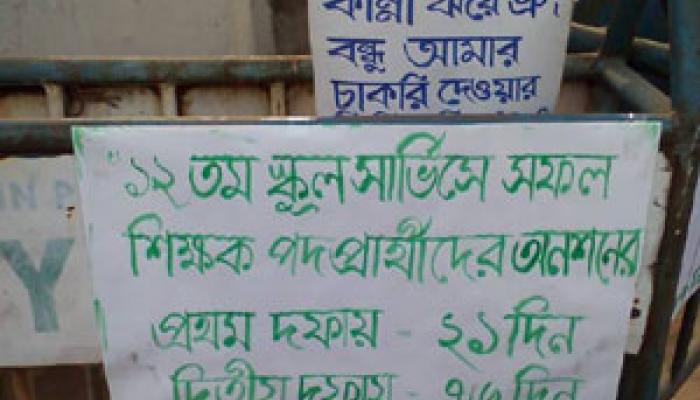 কান্না ঝরে
বন্ধু আমার
চাকরি দেওয়ার
"১২ তম স্কুল সার্ভিসে সফল
শিক্ষক পদপ্রার্থীদের অনশনের
প্রথম দফায় - ২১ দিন
দ্বিতীয় দফায় - দিন
Y